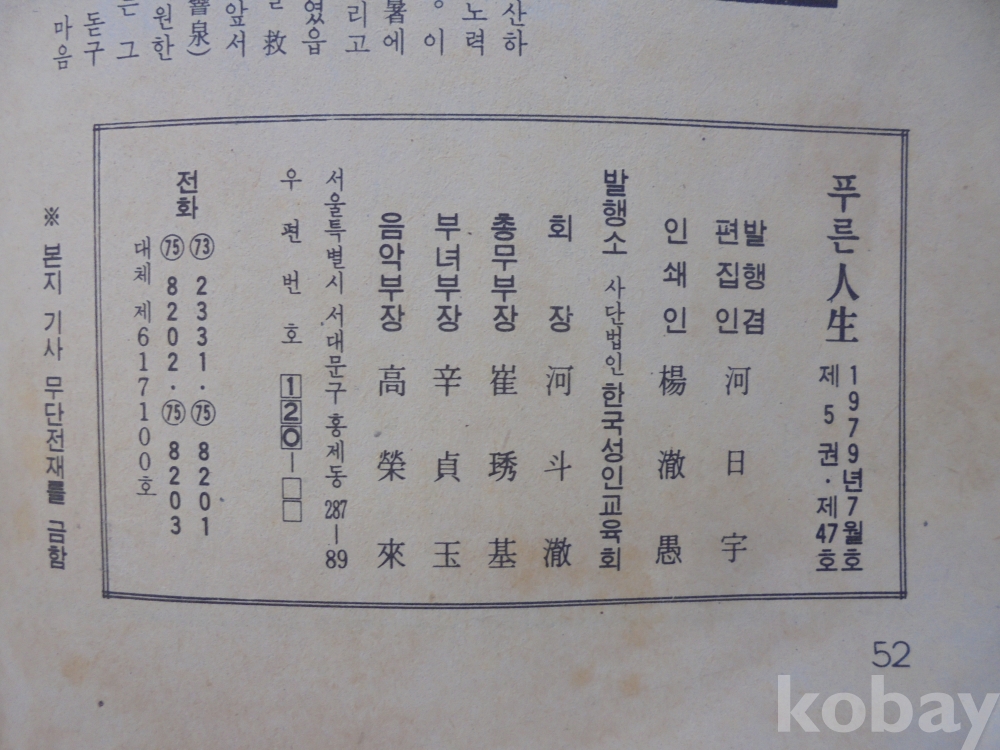 산하
노력
이
暑에
리고
였읍
救
앞서
響泉)
원한
는 그
돋구
마음
푸른人生
1979년7월호
제5권·제47호
발행겸
편집인 河日宇
인쇄인 楊澈愚
발행소 사단법인 한국성인교육회
회장 河斗澈
총무부장 崔琇基
부녀부장 辛貞玉
음악부장 高榮來
서울특별시 서대문구 홍제동 287-89
우편번호 120-□□
전화 ㉓ 2331·㉕ 8201
㉕ 8202·㉕ 8203
대체 제617100호
※ 본지 기사 무단전재를 금함
52
kobay